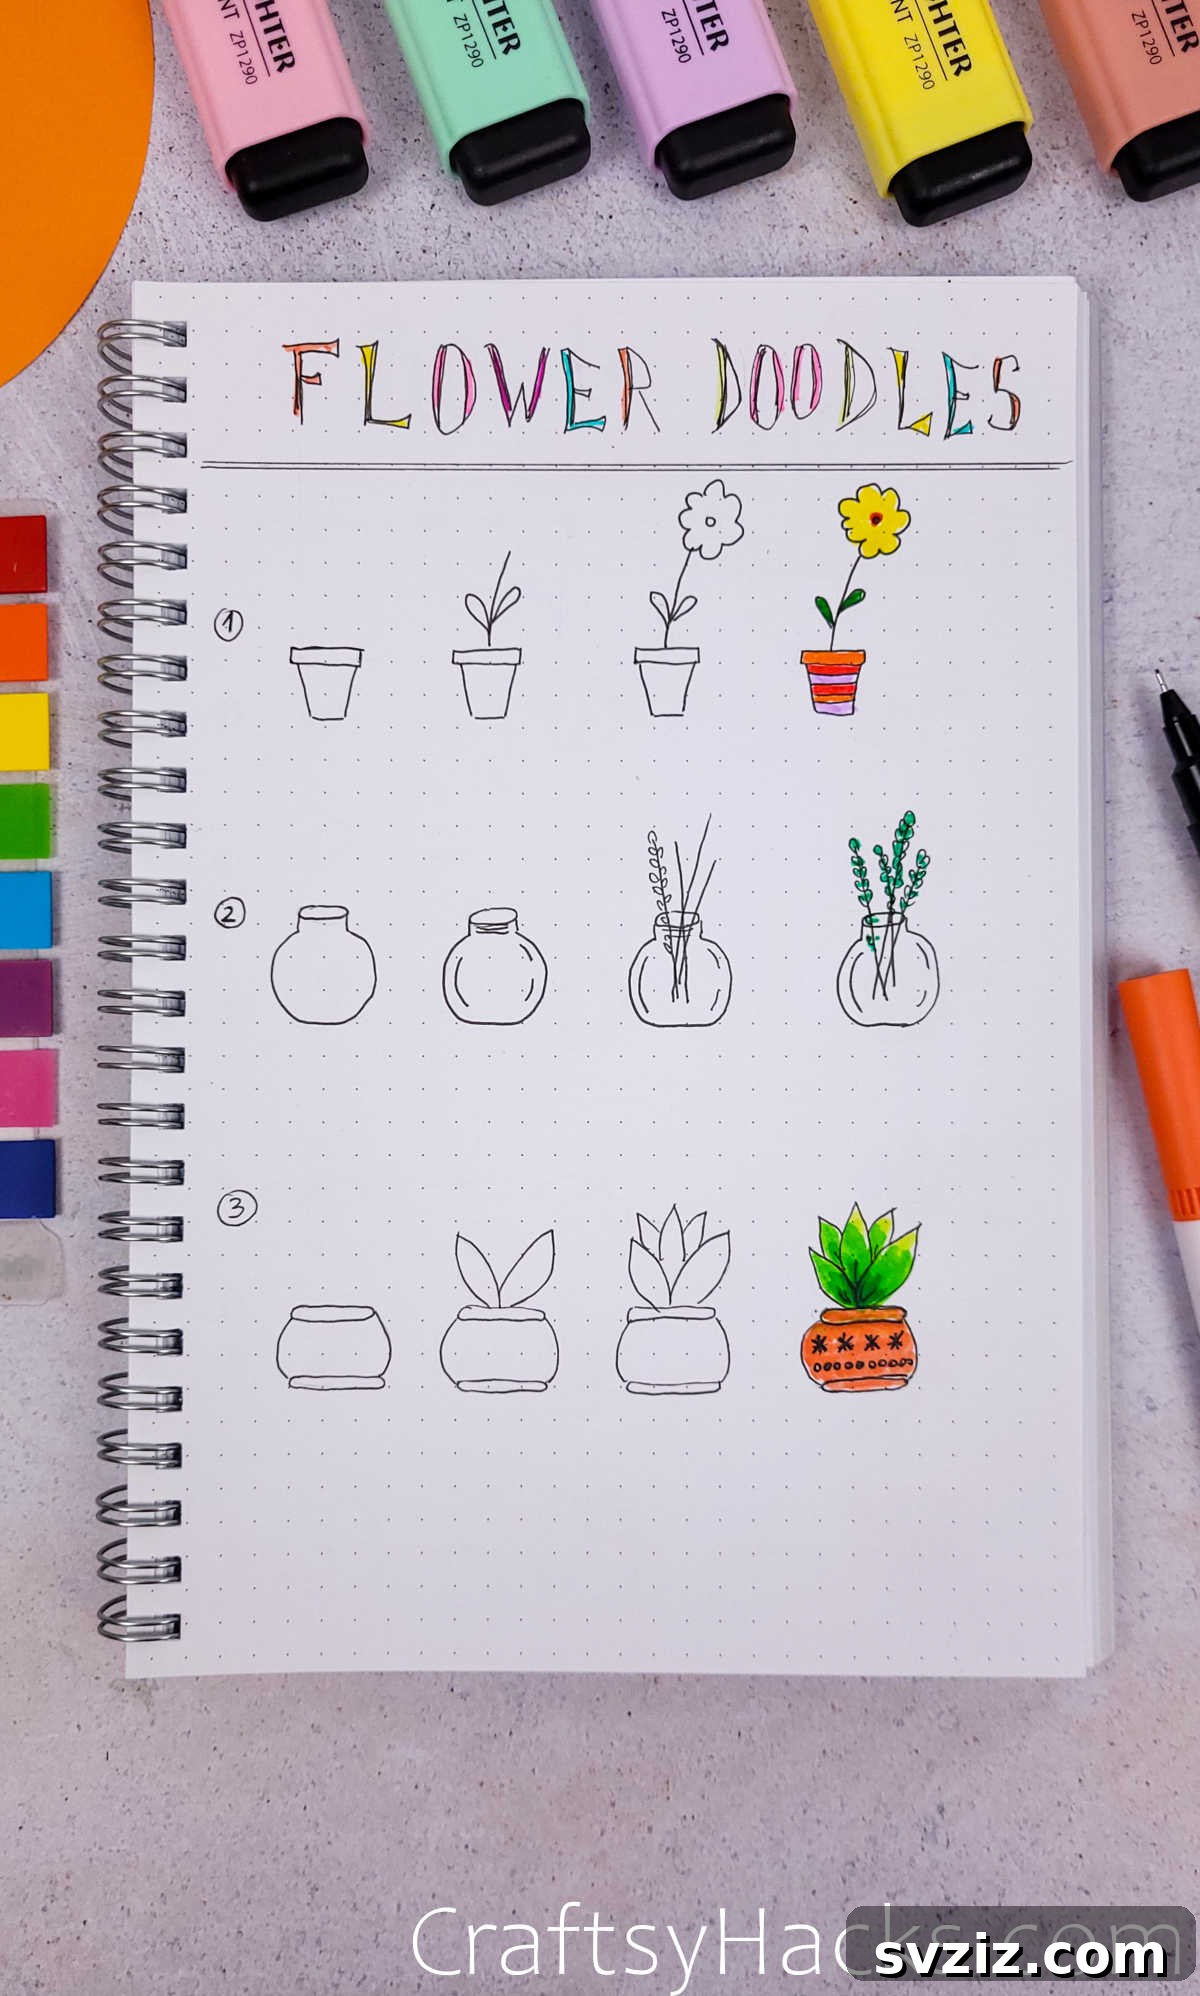 HTER
NT ZP1290
GHTER
NT ZP1290
HTER
ZP1290
GHTER
NT ZP1290
HTER
ZP1290
FLOWER DOODLES
1
2
3
CraftsyHacks.com
svziz.com